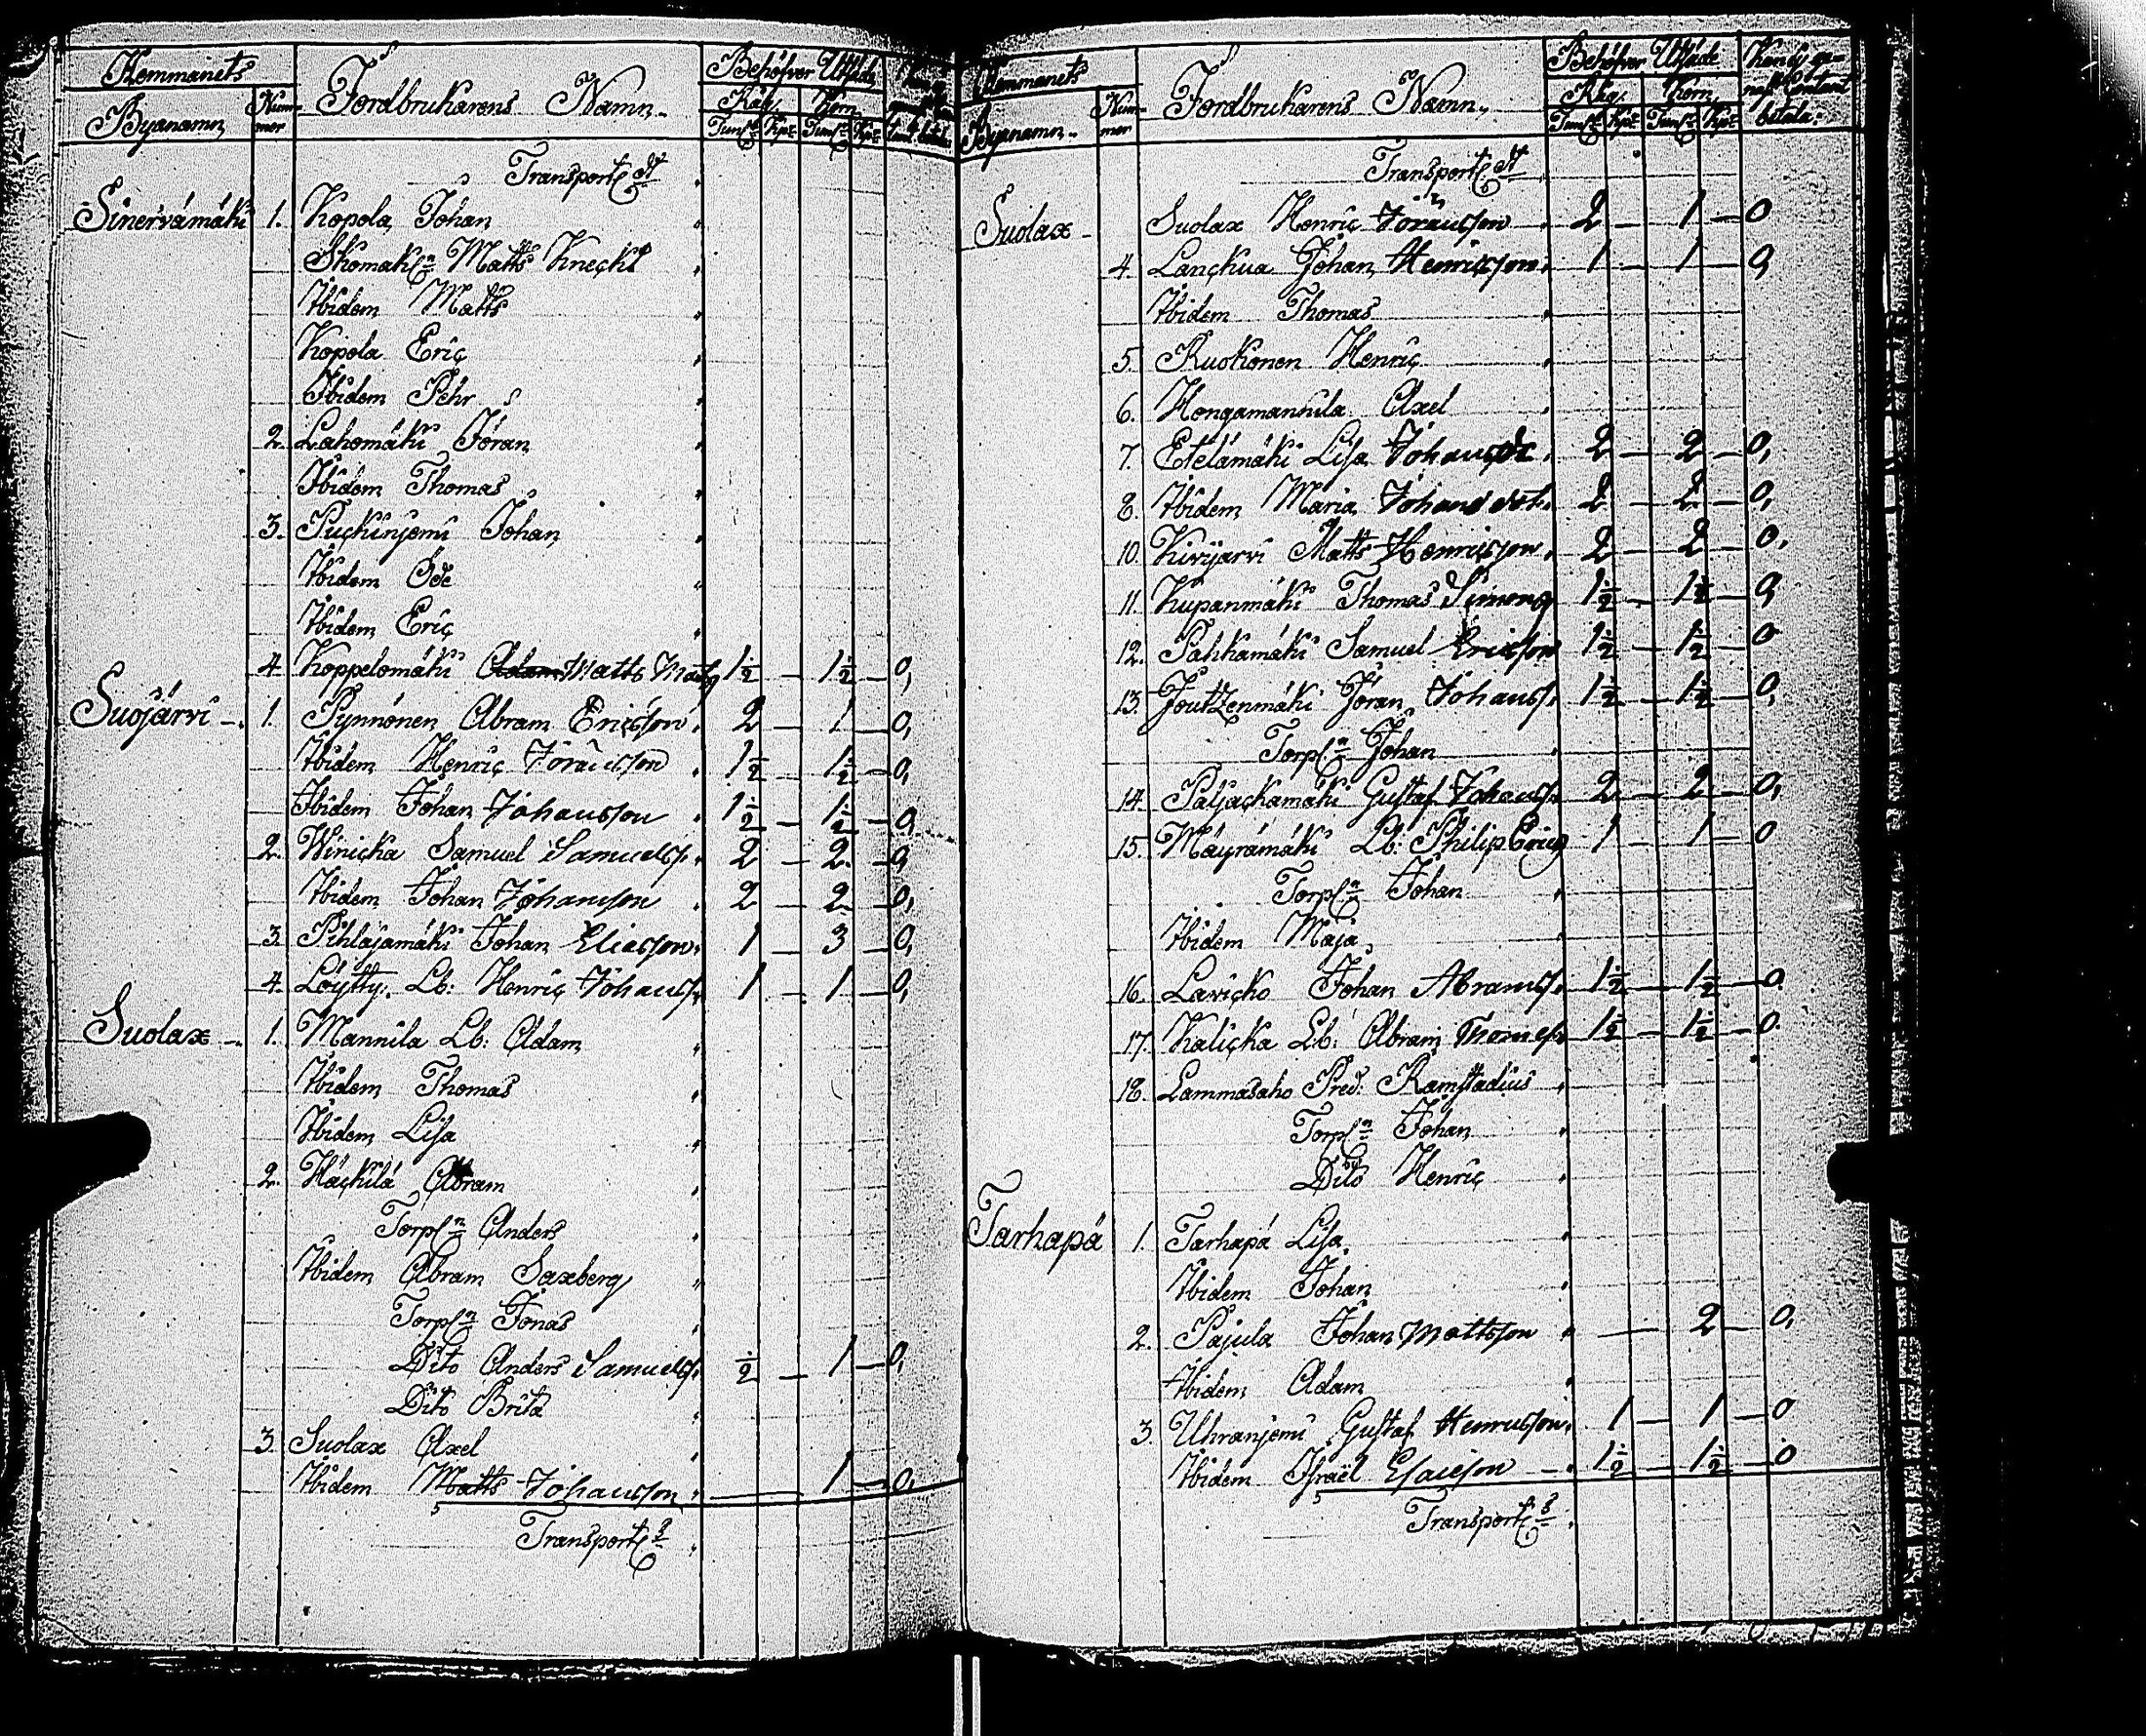 Hemmanets Fordbrukarens Namn Behöfver Utsäde
Byanamn Nummer Råg Korn
Tunnr Kpr Tunnr Kpr
Transport
Sinervämäki 1. Kopola Johan
Skomakn Matts Kneckt
Ibidem Matts
Kopola Eric
Ibidem Pehr
2. Lahomäki Jöran
Ibidem Thomas
3. Puckinjemi Johan
Ibidem
Ibidem Eric
4. Koppelomäki Adam Matts 1½ — 1½ — 0,
Suojärvi 1. Pynnönen Abram Ericsson 2 — 1 — 0,
Ibidem Henric Jöransson 1½ — 1½ — 0,
Ibidem Johan Johansson 1½ — 1½ — 0,
2. Winicka Samuel Samuelss. 2 — 2 — 0,
Ibidem Johan Johansson 2 — 2 — 0,
3. Pihlajamäki Johan Eliasson 1 — 3 — 0,
4. Löytty Lb: Henric Johanss. 1 — 1 — 0,
Suolax 1. Mannila Lb: Adam
Ibidem Thomas
Ibidem Lisa
2. Häckilä Abram
Torpn Anders
Ibidem Abram Saxberg
Torpn Jonas
Dito Anders Samuels. ½ — 1 — 0,
Dito Brita
3. Suolax Axel
Ibidem Matts Johansson — 1 — 0,
Transport
Hemmanets Fordbrukarens Namn Behöfver Utsäde Kan Contant
Byanamn Nummer Råg Korn betala
Tunnr Kpr Tunnr Kpr
Transport
Suolax Suolax Henric Jöransson 2 — 1 — 0
4. Lanckua Johan Henricsson 1 — 1 — 0,
Ibidem Thomas
5. Ruokonen Henric
6. Hongamannila Axel
7. Etelämäki Lisa Johansdr. 2 — 2 — 0,
8. Ibidem Maria Johansdot. 2 — 2 — 0,
10. Kivijärvi Matts Henricsson 2 — 2 — 0,
11. Kupanmäki Thomas Simons 1½ — 1½ — 0,
12. Pahkamäki Samuel Ericsson 1½ — 1½ — 0
13. Joutzenmäki Jöran Johanss. 1½ — 1½ — 0,
Torpn Johan
14. Paljackamäki Gustaf Johanss. 2 — 2 — 0,
15. Mäyrämäki Lb: Philip Erics 1 — 1 — 0
Torpn Johan
Ibidem Maja
16. Lavicko Johan Abramss. 1½ — 1½ — 0
17. Kalicka Lb: Abram Thomass. 1½ — 1½ — 0
18. Lammasaho Pred: Ramstadius
Torpn Johan
Dito Henric
Tarhapä 1. Tarhapä Lisa
Ibidem Johan
2. Pajula Johan Mattsson — 2 — 0,
Ibidem Adam
3. Uhranjemi Gustaf Henricsson 1 — 1 — 0
Ibidem Israël Esaiesson 1½ — 1½ — 0
Transport